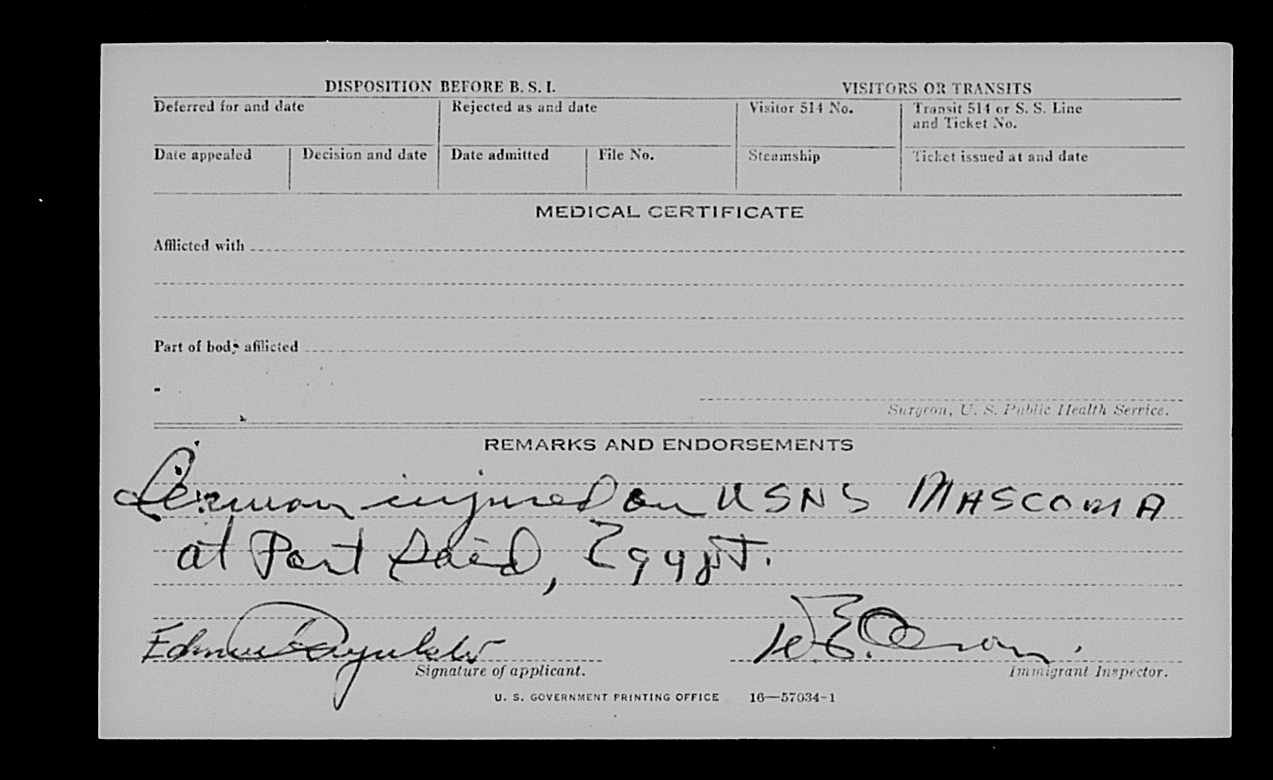 DISPOSITION BEFORE B. S. I.
VISITORS OR TRANSITS
Deferred for and date
Rejected as and date
Visitor 514 No.
Transit 514 or S. S. Line
and Ticket No.
Date appealed
Decision and date
Date admitted
File No.
Steamship
Ticket issued at and date
MEDICAL CERTIFICATE
Afflicted with
Part of body afflicted
Surgeon, U. S. Public Health Service.
REMARKS AND ENDORSEMENTS
injured on USNS MASCOMA
at Port Said, Egypt.
Signature of applicant.
Immigrant Inspector.
U. S. GOVERNMENT PRINTING OFFICE 16—57034-1